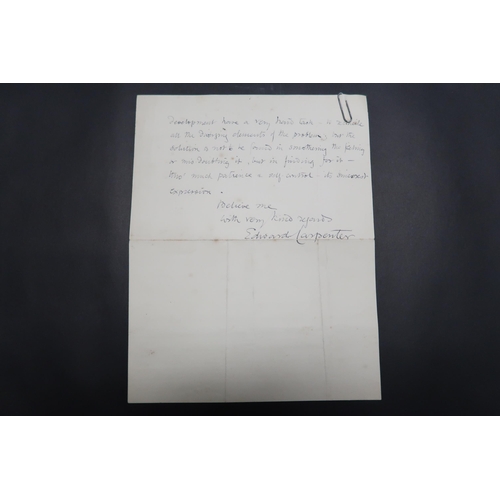 development have a very hard task - to
all the changing elements of the problem; but the
solution is not to be found in smothering the feeling
or it, but in finding for it -
tho' much patience & any control its
expression.
Believe me
with very kind regards
Edward Carpenter